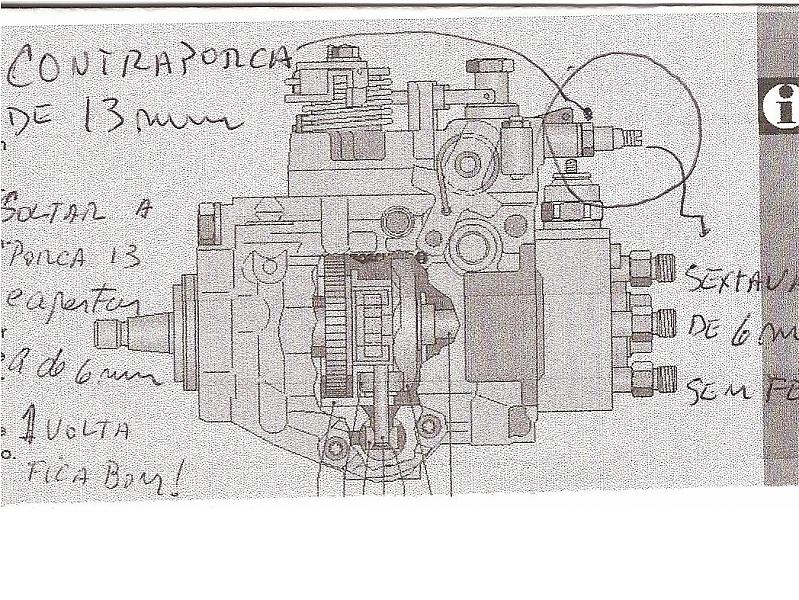 CONTRAPORCA
DE 13 mm
SOLTAR A
PORCA 13
e apertar
a de 6 mm
1 VOLTA
FICA BOM!
SEXTAVA
DE 6 m
SEM FE
i